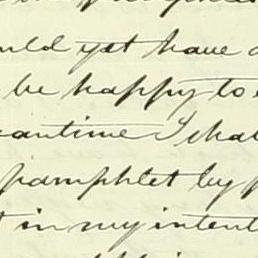 uld yet have
be happy to
eantime I shal
pamphlet by
t in my intent